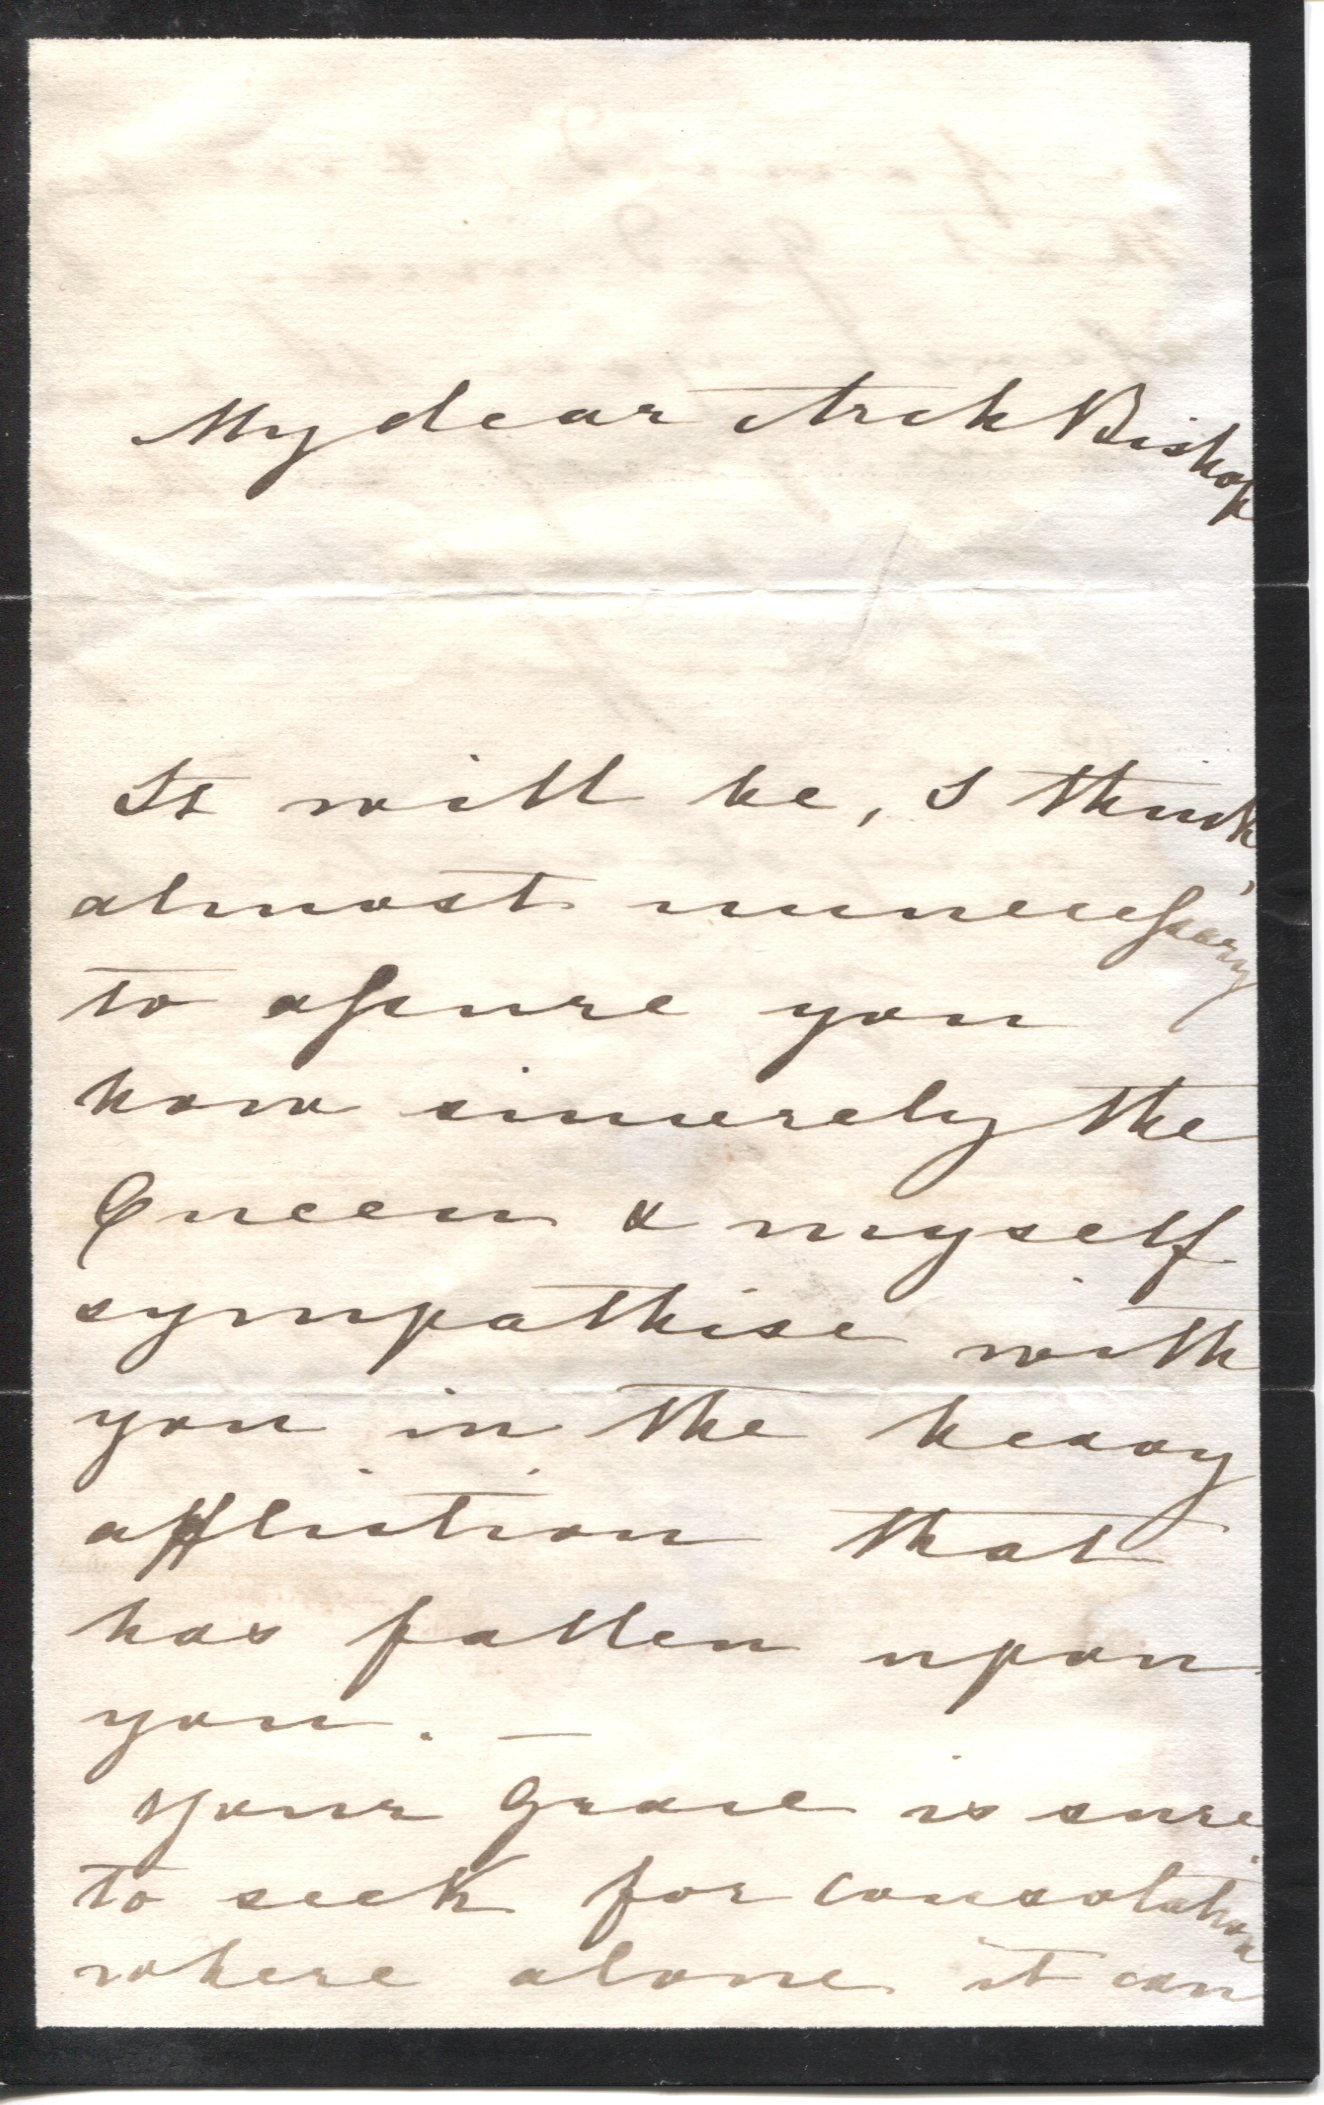 My dear Arch Bishop
It will be, I think,
almost unnecessary
to assure you
how sincerely the
Queen & myself
sympathise with
you in the heavy
affliction that
has fallen upon
you. —
Your Grace is sure
to seek for consolation
where alone it can